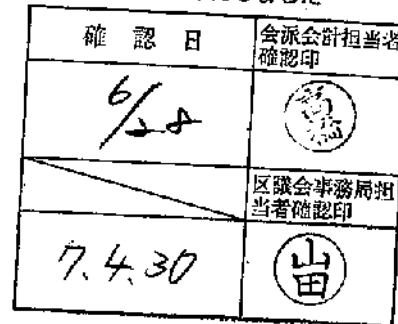 確認日
会派会計担当者
確認印
6/28
髙橋
区議会事務局担
当者確認印
7.4.30
山田